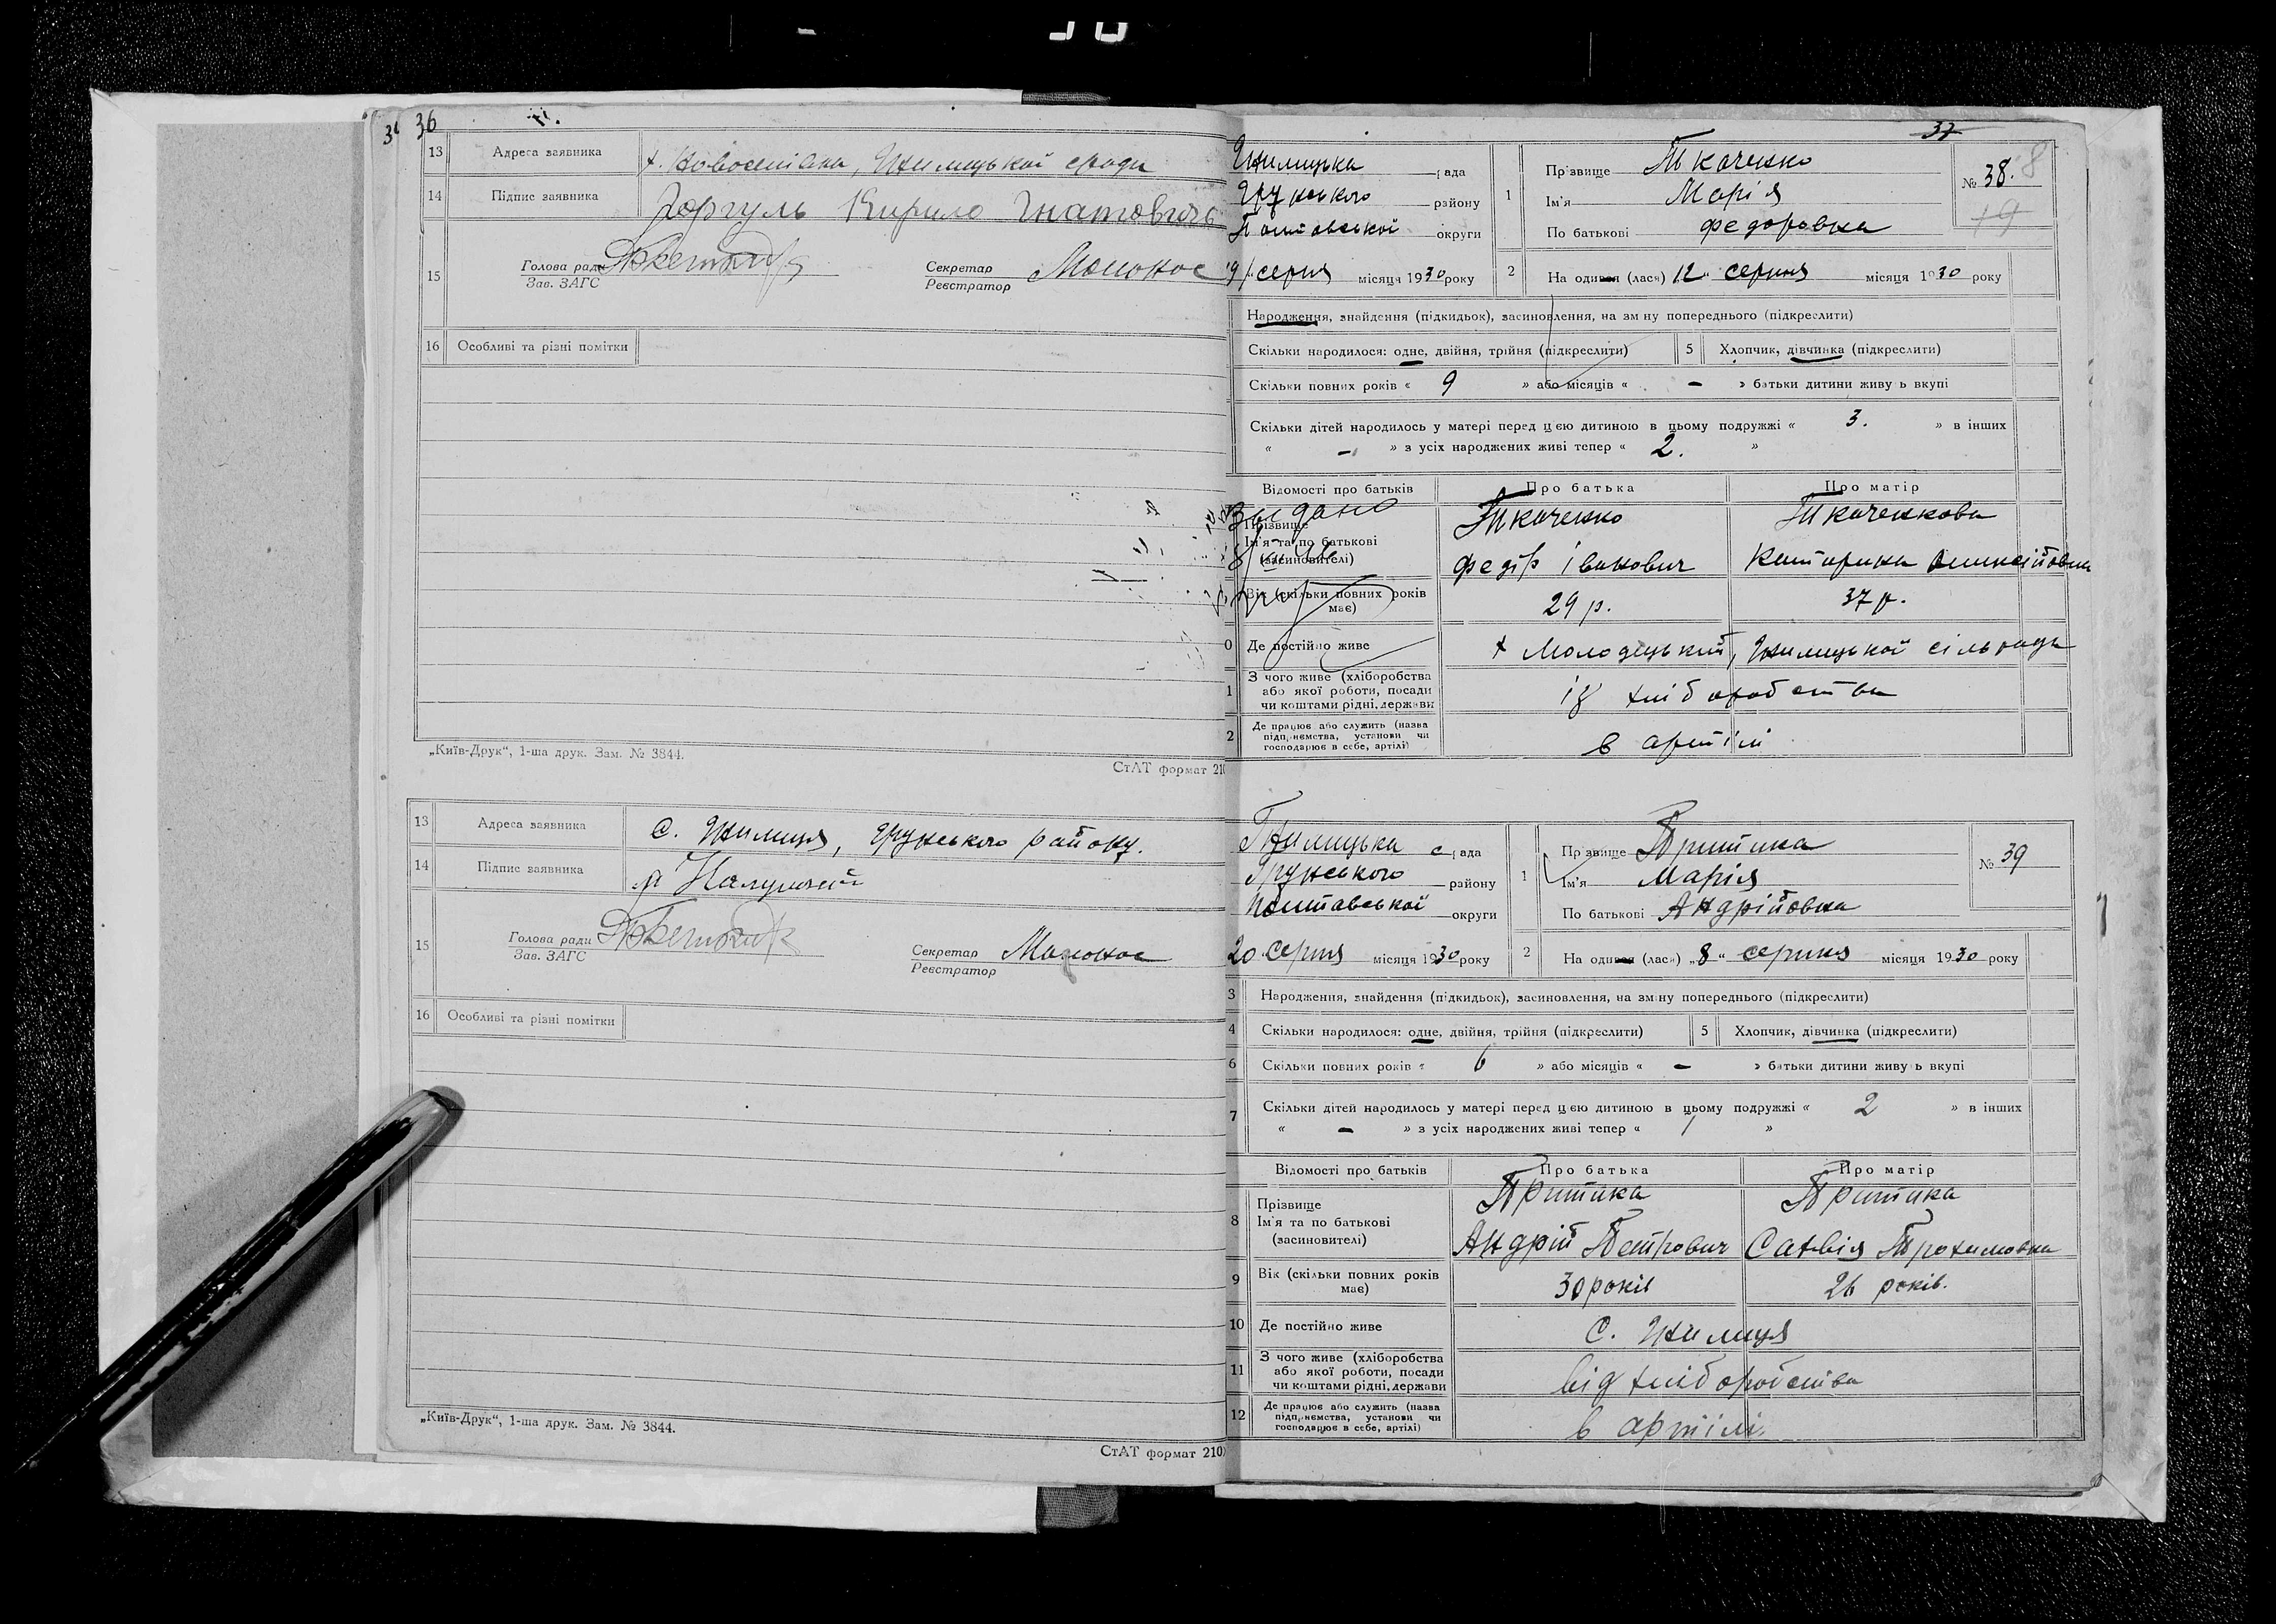 36
13 Адреса заявника х. Новоселівка, Гнилицької сради
14 Підпис заявника Кирило Гнатович
15 Голова ради Зав. ЗАГС
Секретар Реєстратор
16 Особливі та різні помітки
„Київ-Друк“, 1-ша друк. Зам. № 3844.
СтАТ формат 210
13 Адреса заявника С. Гнилиця, Грунського району.
14 Підпис заявника
15 Голова ради Зав. ЗАГС
Секретар Реєстратор
16 Особливі та різні помітки
„Київ-Друк“, 1-ша друк. Зам. № 3844.
СтАТ формат 210
37
Гнилицька рада
Грунського району
Полтавської округи
19 серпня місяця 1930 року
1 Прізвище Ткаченко
Ім'я Марія
По батькові Федоровна
№ 38.
2 На один (ласн) „12“ серпня місяця 1930 року
Народження, знайдення (підкидьок), засиновлення, на зміну попереднього (підкреслити)
Скільки народилося: одне, двійня, трійня (підкреслити)
5 Хлопчик, дівчинка (підкреслити)
Скільки повних років « 9 » або місяців « - » батьки дитини живуть вкупі
Скільки дітей народилось у матері перед цією дитиною в цьому подружжі « 3. » в інших
« - » з усіх народжених живі тепер « 2. »
Відомості про батьків Про батька Про матір
Прізвище Ткаченко Ткаченкова
Ім'я та по батькові (засиновителі) Федір Іванович Катерина Олексіївна
Вік (скільки повних років має) 29 р. 37 р.
Де постійно живе х Молодецький, Гнилицької сільради
З чого живе (хліборобства або якої роботи, посади чи коштами рідні, держави із хліборобства
Де працює або служить (назва підприємства, установи чи господарює в себе, артілі) в артілі
Гнилицька срада
Грунського району
Полтавської округи
20 серпня місяця 1930 року
1 Прізвище Притика
Ім'я Марія
По батькові Андрійовна
№ 39
2 На один (ласн) „8“ серпня місяця 1930 року
3 Народження, знайдення (підкидьок), засиновлення, на зміну попереднього (підкреслити)
4 Скільки народилося: одне, двійня, трійня (підкреслити)
5 Хлопчик, дівчинка (підкреслити)
6 Скільки повних років « 6 » або місяців « - » батьки дитини живуть вкупі
7 Скільки дітей народилось у матері перед цією дитиною в цьому подружжі « 2 » в інших
« - » з усіх народжених живі тепер « 1 »
Відомості про батьків Про батька Про матір
8 Прізвище Притика Притика
Ім'я та по батькові (засиновителі) Андрій Петрович Трохимовна
9 Вік (скільки повних років має) 30 років 26 років.
10 Де постійно живе С. Гнилиця
11 З чого живе (хліборобства або якої роботи, посади чи коштами рідні, держави від хліборобства
12 Де працює або служить (назва підприємства, установи чи господарює в себе, артілі) в артілі